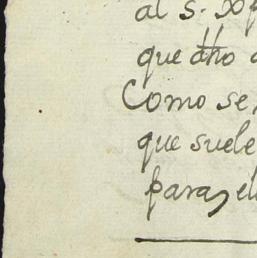 al s.
que dho
Como se
que suele
para el